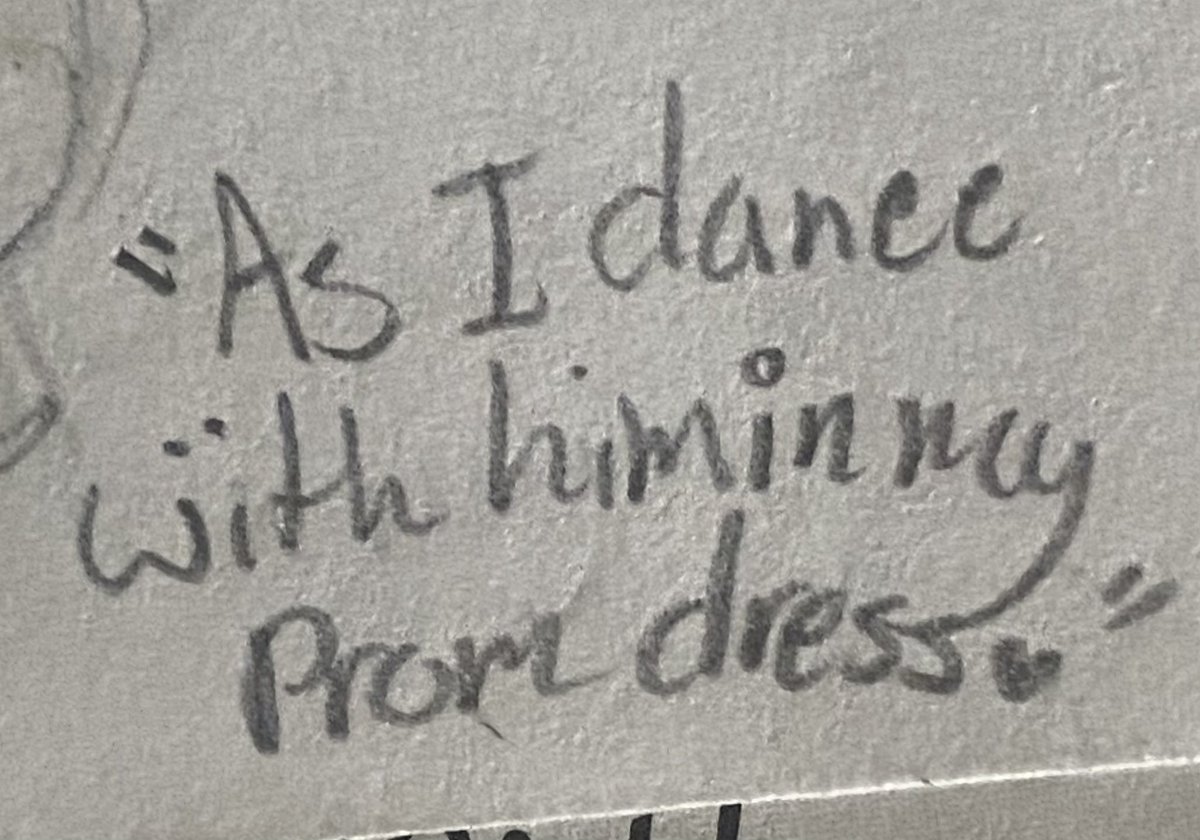 "As I dance
with him in my
Prom dress."